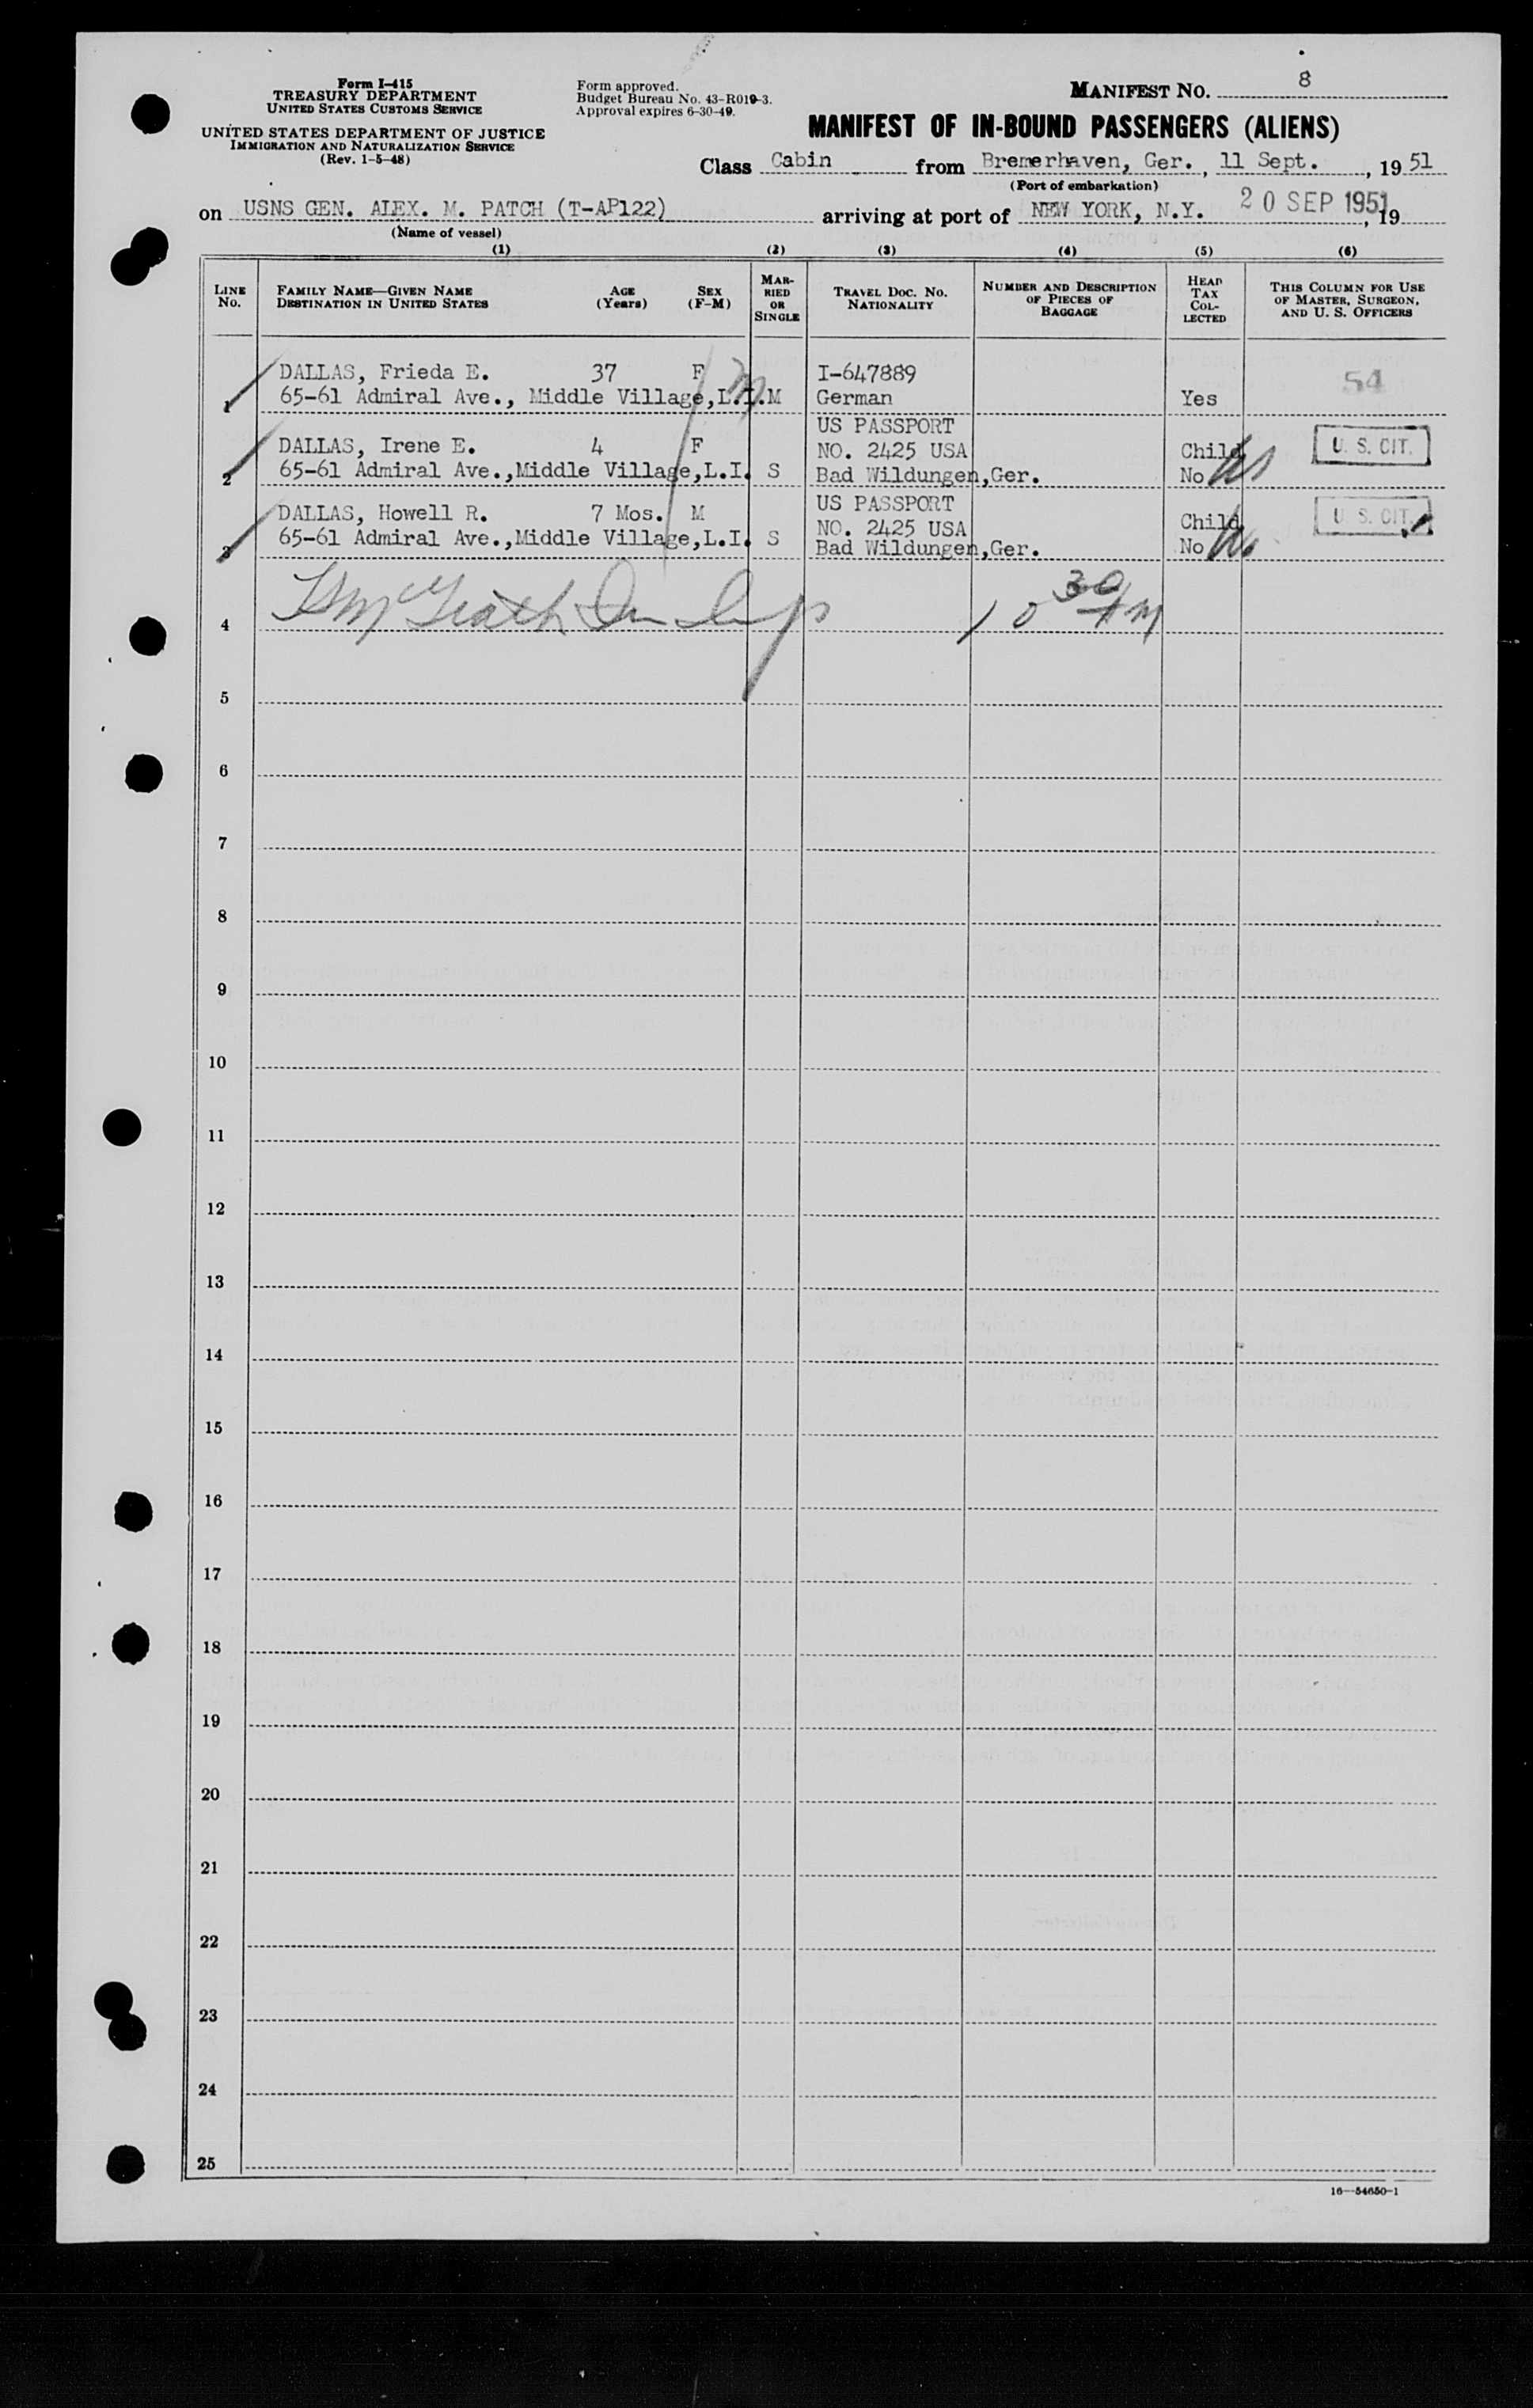 Form I-415
TREASURY DEPARTMENT
UNITED STATES CUSTOMS SERVICE
UNITED STATES DEPARTMENT OF JUSTICE
IMMIGRATION AND NATURALIZATION SERVICE
(Rev. 1-5-48)
Form approved.
Budget Bureau No. 43-R019-3.
Approval expires 6-30-49.
MANIFEST NO. 8
MANIFEST OF IN-BOUND PASSENGERS (ALIENS)
Class Cabin from Bremerhaven, Ger., 11 Sept., 1951
(Port of embarkation)
on USNS GEN. ALEX. M. PATCH (T-AP122) arriving at port of NEW YORK, N.Y. 20 SEP 1951, 19
(Name of vessel)
(1) (2) (3) (4) (5) (6)
LINE No.
FAMILY NAME—GIVEN NAME
DESTINATION IN UNITED STATES
AGE (Years)
SEX (F-M)
MARRIED OR SINGLE
TRAVEL DOC. NO.
NATIONALITY
NUMBER AND DESCRIPTION OF PIECES OF BAGGAGE
HEAD TAX COLLECTED
THIS COLUMN FOR USE OF MASTER, SURGEON, AND U. S. OFFICERS
DALLAS, Frieda E. 37 F I-647889 54
1 65-61 Admiral Ave., Middle Village,L.I. M German Yes
US PASSPORT
DALLAS, Irene E. 4 F NO. 2425 USA Child U. S. CIT.
2 65-61 Admiral Ave.,Middle Village,L.I. S Bad Wildungen,Ger. No
US PASSPORT
DALLAS, Howell R. 7 Mos. M NO. 2425 USA Child U. S. CIT.
3 65-61 Admiral Ave.,Middle Village,L.I. S Bad Wildungen,Ger. No
10 30 AM
4
5
6
7
8
9
10
11
12
13
14
15
16
17
18
19
20
21
22
23
24
25
16—54650-1